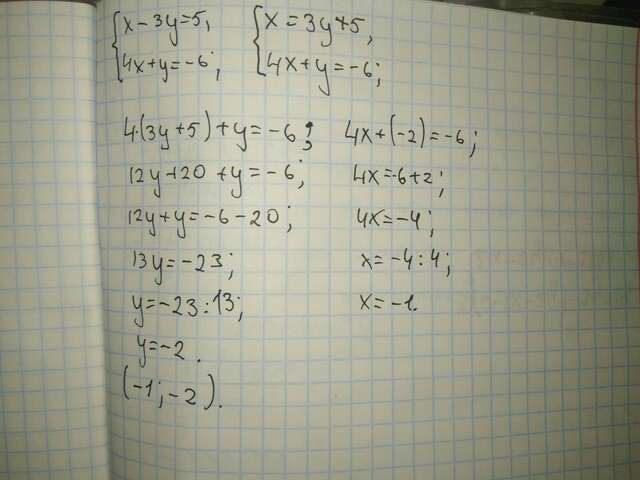 {x-3y=5,
4x+y=-6;
{x=3y+5,
4x+y=-6;
4·(3y+5)+y=-6;
12y+20+y=-6;
12y+y=-6-20;
13y=-23;
y=-23:13;
y=-2.
(-1;-2).
4x+(-2)=-6;
4x=-6+2;
4x=-4;
x=-4:4;
x=-1.